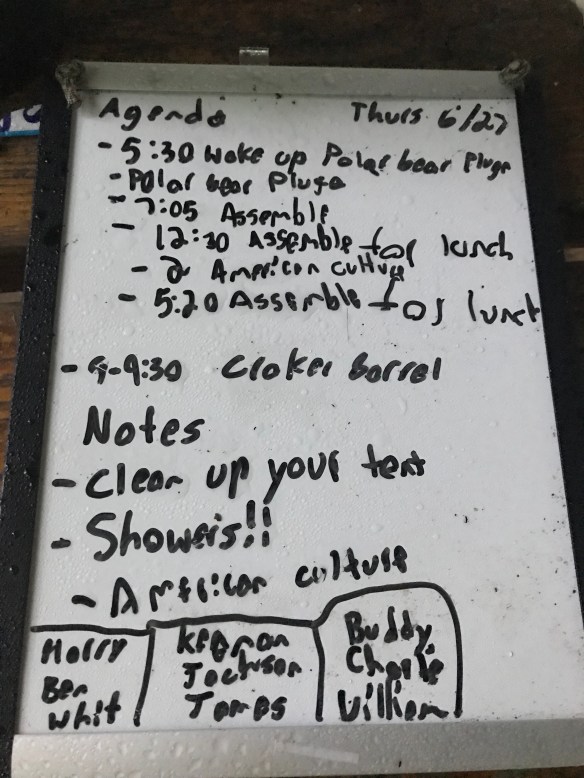 Agenda Thurs 6/27
- 5:30 Wake up Polar bear Pluge
- Polar bear Pluge
- 7:05 Assemble
- 12:30 Assemble for lunch
- 2 American culture
- 5:20 Assemble for lunch
- 9-9:30 Croker barrel
Notes
- Clean up your tent
- Showers!!
- American culture
Harry Keenan Buddy
Ben Jackson Charlie
Whit James William